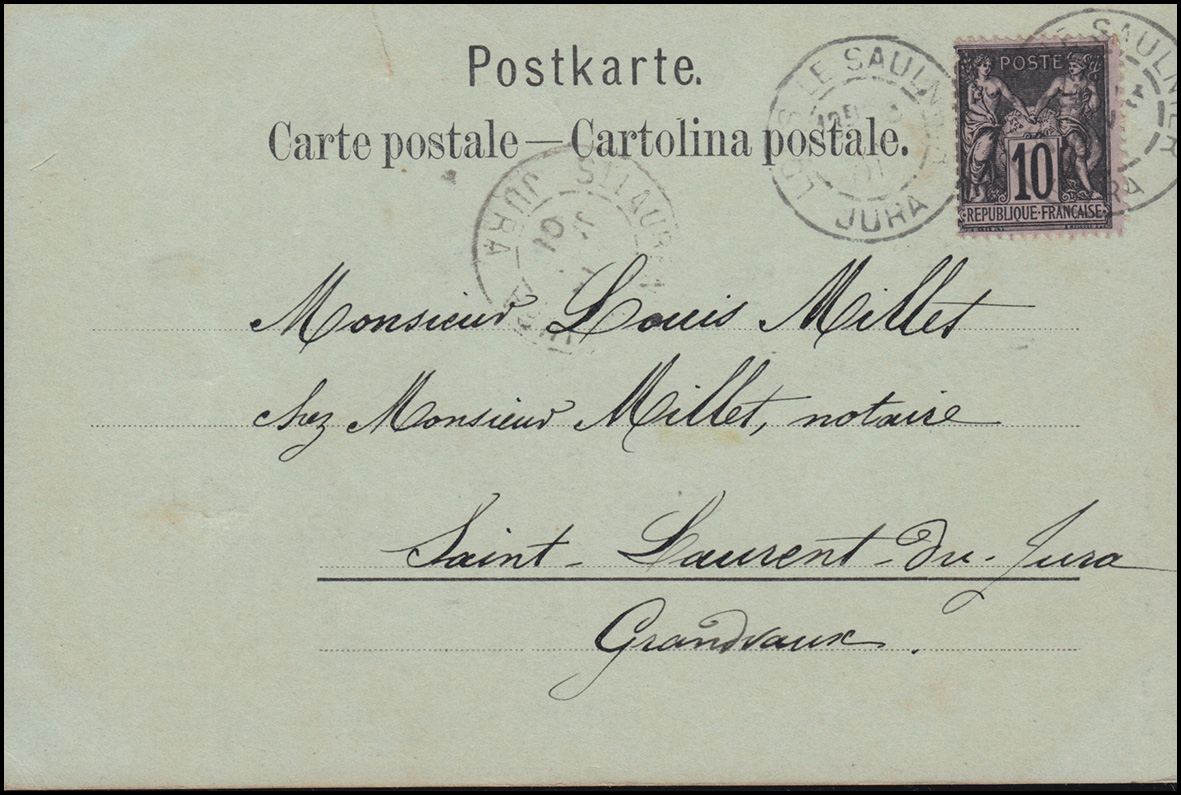 Postkarte.
Carte postale — Cartolina postale.
LE SAULNIER
JURA
LE SAULNIER
POSTE
10
REPUBLIQUE·FRANÇAISE
JURA
01
Monsieur Louis Millet
chez Monsieur Millet, notaire
Saint-Laurent-du-Jura
Grandvaux.